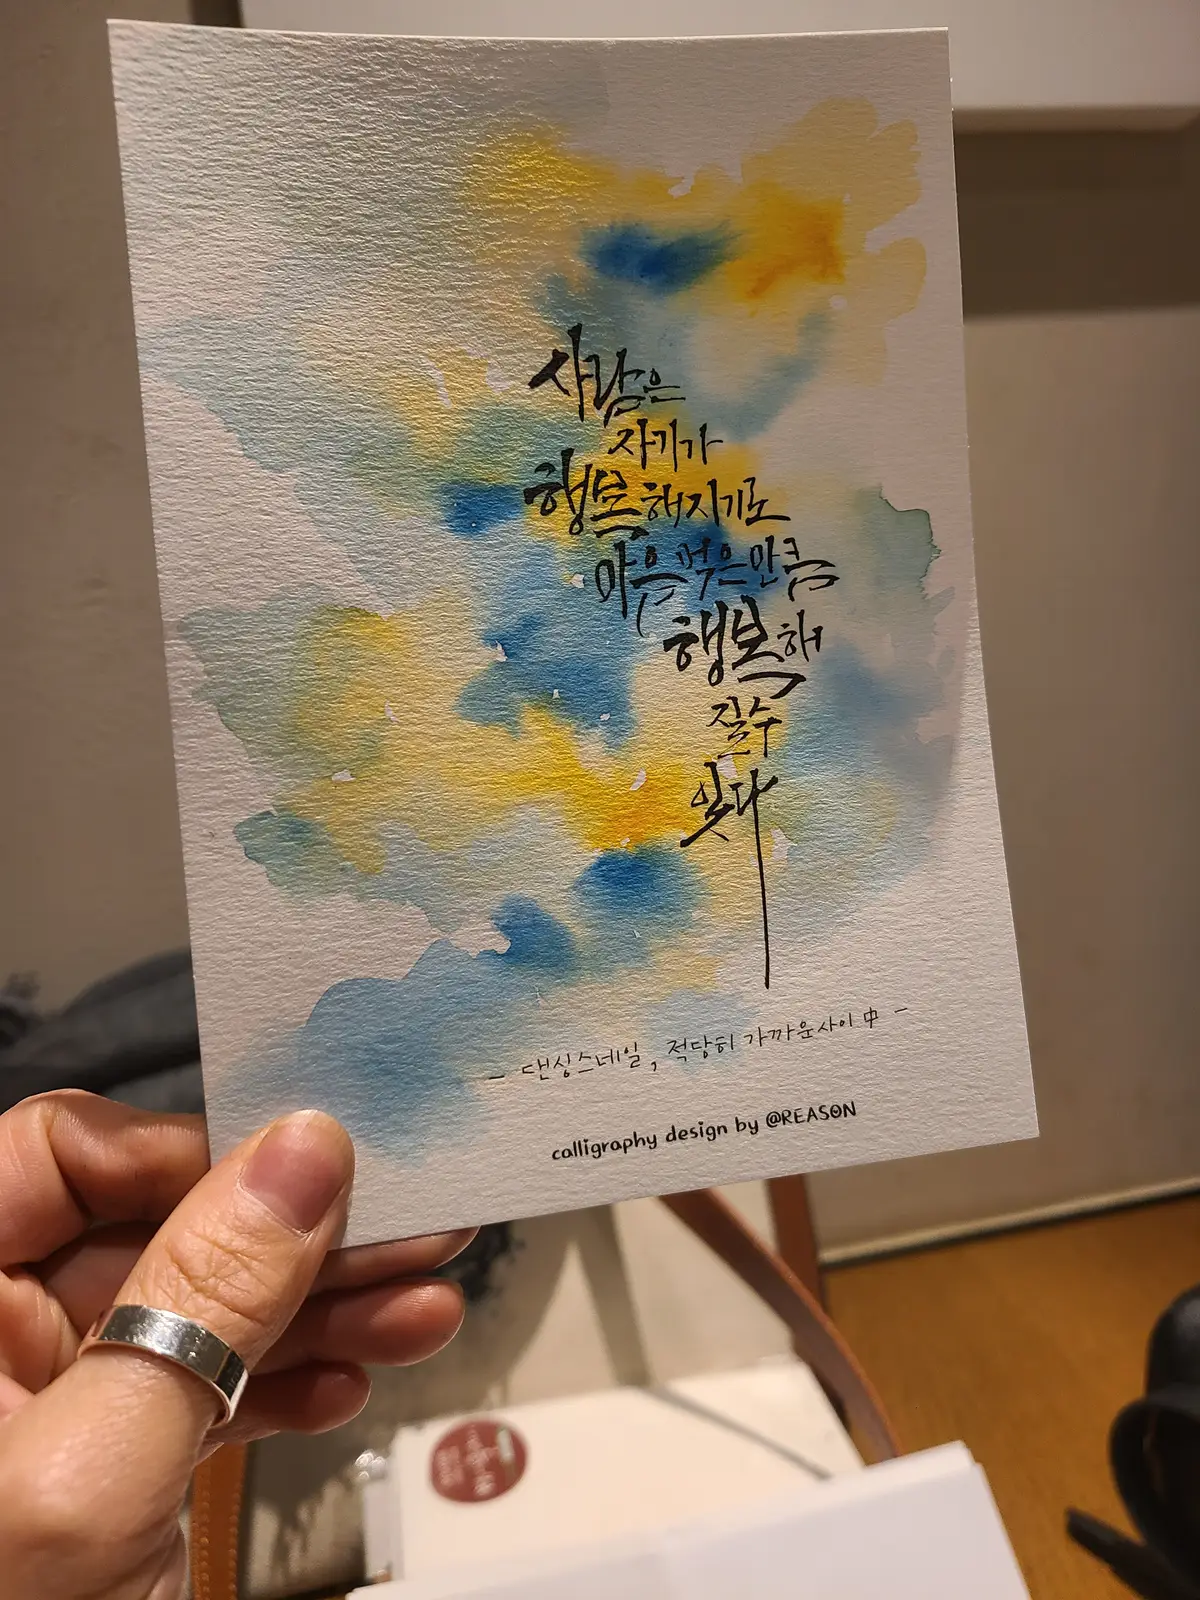 사람은
자기가
행복해지기로
마음먹은만큼
행복해
질수
있다
- 댄싱스네일, 적당히 가까운사이 中 -
calligraphy design by @REASON